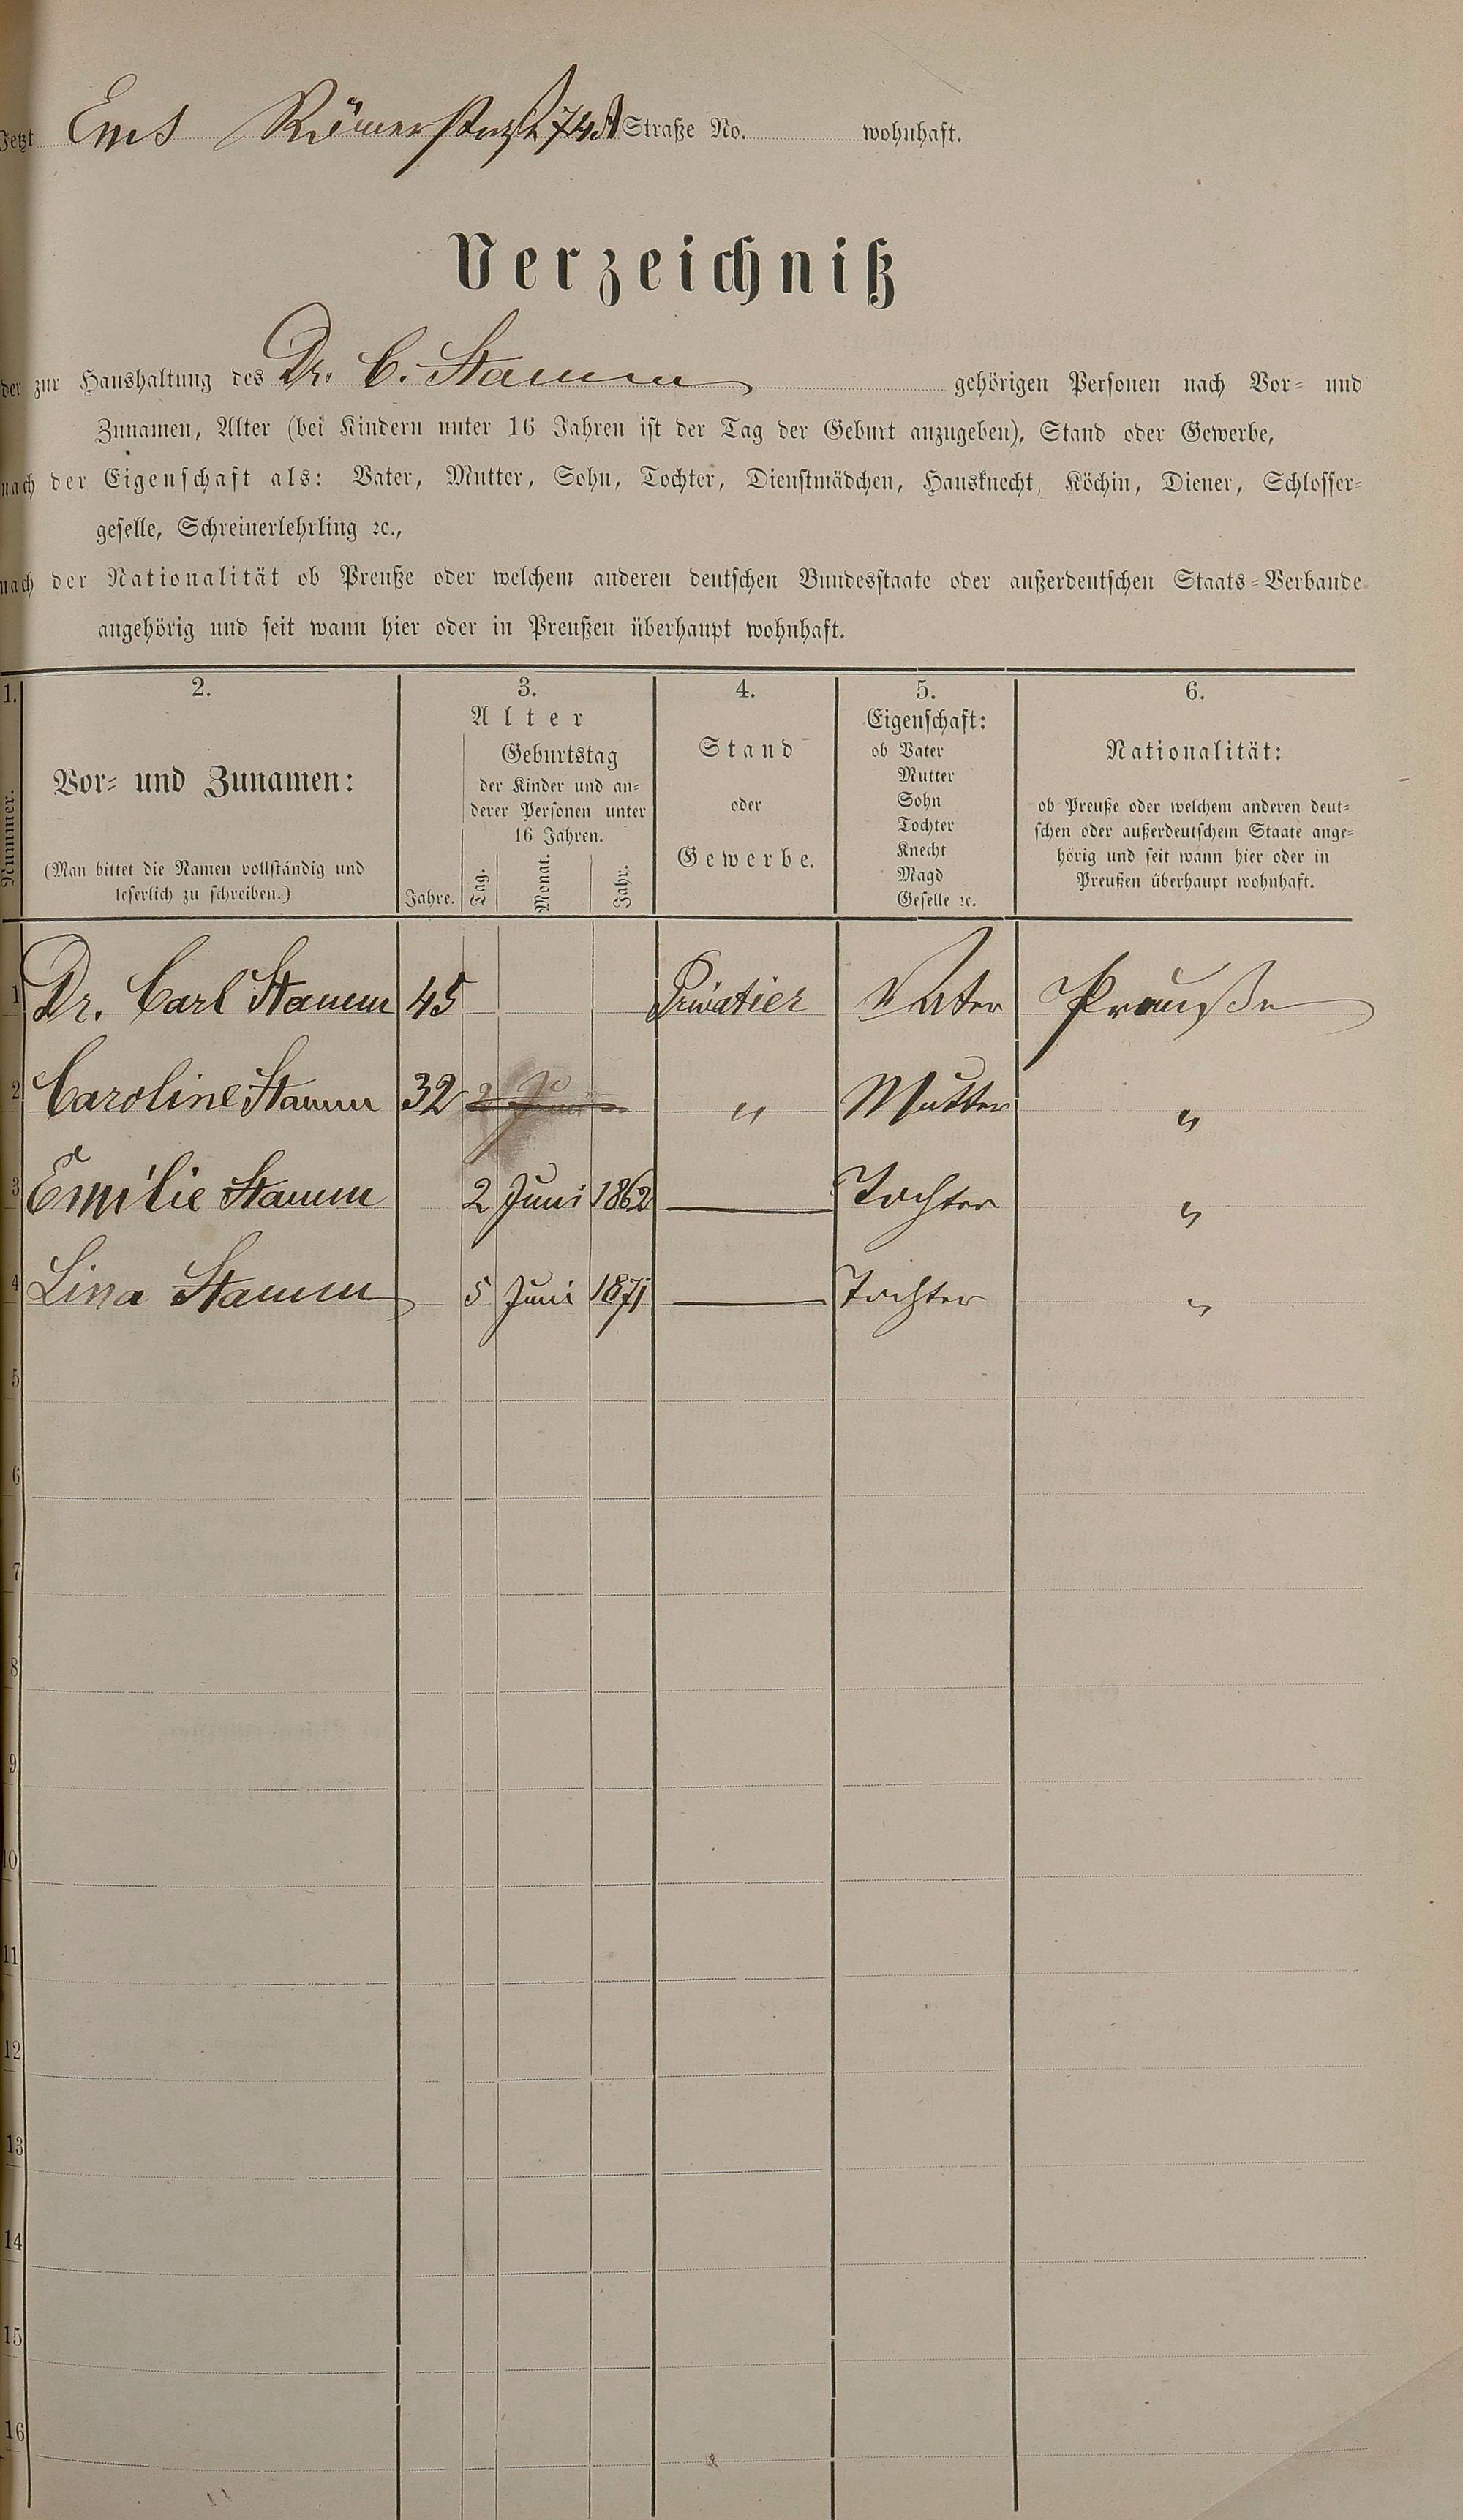 Jetzt Ems Römerstraße 74A Straße No. wohnhaft.
Verzeichniß
der zur Haushaltung des Dr. C. Stamm gehörigen Personen nach Vor- und
Zunamen, Alter (bei Kindern unter 16 Jahren ist der Tag der Geburt anzugeben), Stand oder Gewerbe,
nach der Eigenschaft als: Vater, Mutter, Sohn, Tochter, Dienstmädchen, Hausknecht, Köchin, Diener, Schlosser-
geselle, Schreinerlehrling ꝛc.,
nach der Nationalität ob Preuße oder welchem anderen deutschen Bundesstaate oder außerdeutschen Staats-Verbande
angehörig und seit wann hier oder in Preußen überhaupt wohnhaft.
1.
Nummer.
2.
Vor- und Zunamen:
(Man bittet die Namen vollständig und
leserlich zu schreiben.)
3.
Alter
Geburtstag
der Kinder und an-
derer Personen unter
16 Jahren.
Jahre. Tag. Monat. Jahr.
4.
Stand
oder
Gewerbe.
5.
Eigenschaft:
ob Vater
Mutter
Sohn
Tochter
Knecht
Magd
Geselle ꝛc.
6.
Nationalität:
ob Preuße oder welchem anderen deut-
schen oder außerdeutschem Staate ange-
hörig und seit wann hier oder in
Preußen überhaupt wohnhaft.
1 Dr. Carl Stamm 45 Privatier Vater Preuße
2 Caroline Stamm 32 2 Juni " Mutter "
3 Emilie Stamm 2 Juni 1862 Tochter "
4 Lina Stamm 5 Juni 1871 Tochter "
5
6
7
8
9
10
11
12
13
14
15
16